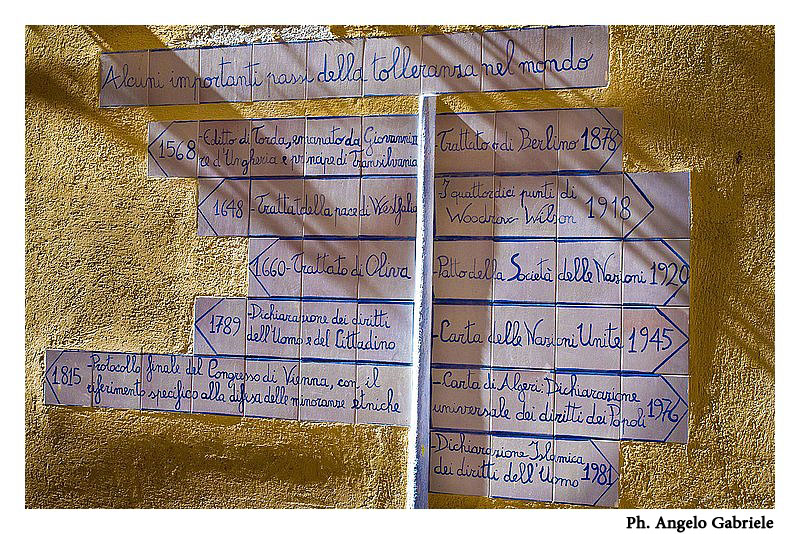 Alcuni importanti passi della tolleranza nel mondo
1568 - Editto di Torda, emanato da Giovanni II
re d'Ungheria e principe di Transilvania
1648 - Trattati della pace di Westfalia
1660 - Trattato di Oliva
1789 - Dichiarazione dei diritti
dell'Uomo e del Cittadino
1815 - Protocollo finale del Congresso di Vienna, con il
riferimento specifico alla difesa delle minoranze etniche
- Trattato di Berlino 1878
I quattordici punti di
Woodrow Wilson 1918
Patto della Società delle Nazioni 1920
- Carta delle Nazioni Unite 1945
- Carta di Algeri: Dichiarazione
universale dei diritti dei Popoli 1976
- Dichiarazione Islamica
dei diritti dell'Uomo 1981
Ph. Angelo Gabriele